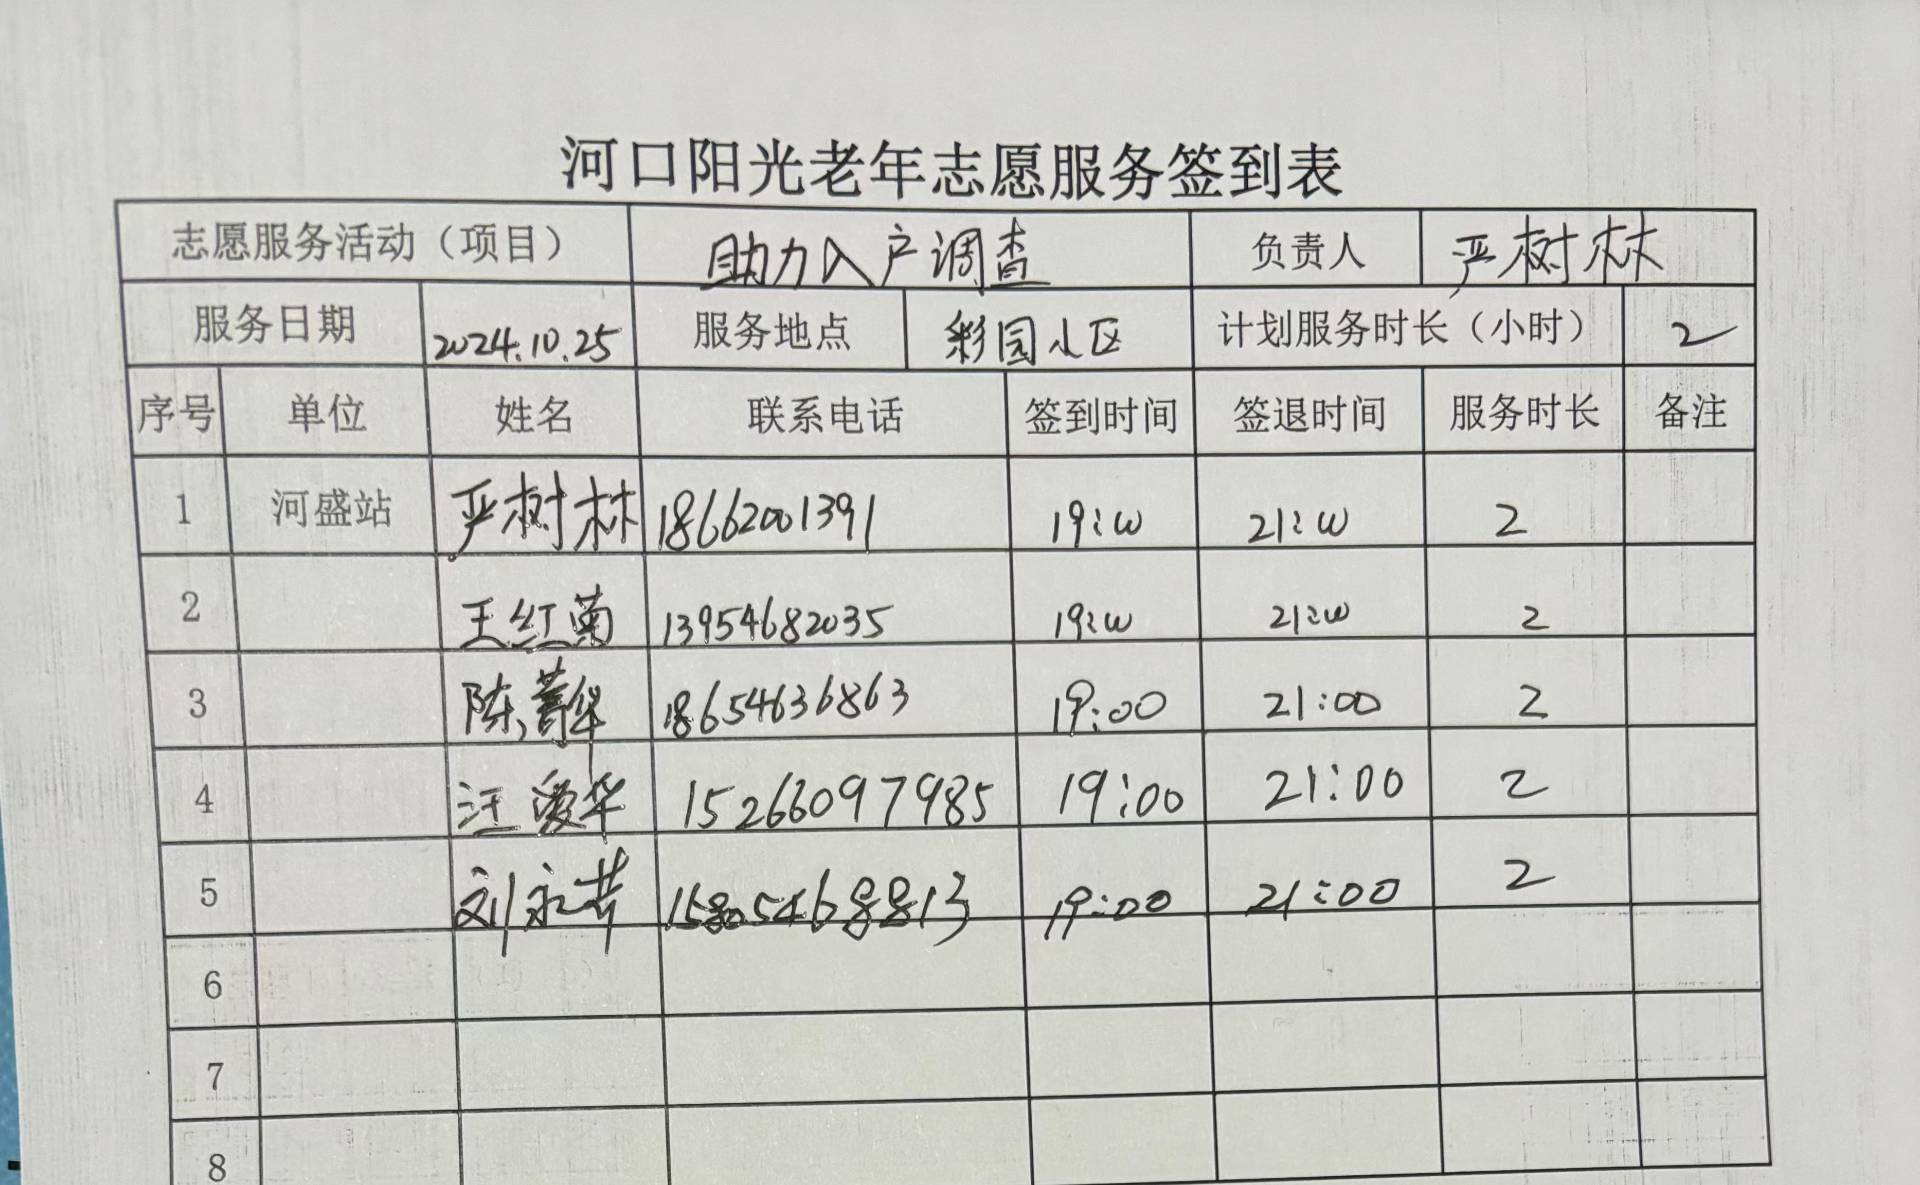 河口阳光老年志愿服务签到表
志愿服务活动（项目） 助力入户调查 负责人 严树林
服务日期 2024.10.25 服务地点 彩园小区 计划服务时长（小时） 2
序号 单位 姓名 联系电话 签到时间 签退时间 服务时长 备注
1 河盛站 严树林 18662001391 19:00 21:00 2
2 王红菊 13954682035 19:00 21:00 2
3 陈菁华 18654636863 19:00 21:00 2
4 汪爱华 15266097985 19:00 21:00 2
5 刘永 15805468813 19:00 21:00 2
6
7
8